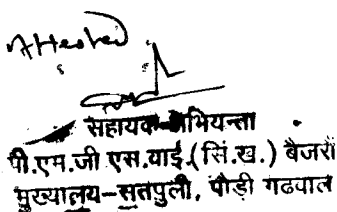 Attested
सहायक अभियन्ता
पी.एम.जी एस.वाई.(सिं.ख.) बैजरो
मुख्यालय-सतपुली, पौड़ी गढवाल